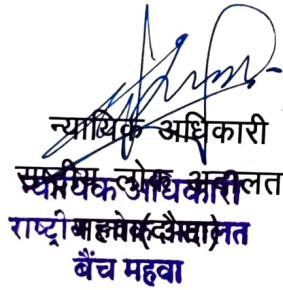 न्यायिक अधिकारी
राष्ट्रीय लोक अदालत
न्यायिक अधिकारी
राष्ट्रीय लोक अदालत
बैंच महवा